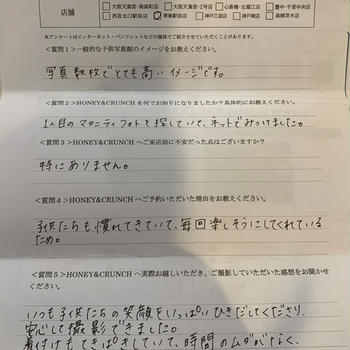 店舗
□大阪天満宮・南森町店 □大阪天満宮・2号店 □心斎橋・北堀江店 □豊中・千里中央店
□西宮北口駅前店 ☑堺東駅前店 □神戸三宮店 □神戸東店 □高槻茨木店
本アンケートはインターネット・パンフレットなどの媒体でご紹介させていただくことがあります。
<質問1>一般的な子供写真館のイメージをお教えください。
写真数枚でとても高いイメージです。
<質問2>HONEY&CRUNCHを何でお知りになりましたか？具体的にお教えください。
1人目のマタニティフォトを探していて、ネットでみつけました。
<質問3>HONEY&CRUNCHへご来店前に不安だった点はございますか？
特にありません。
<質問4>HONEY&CRUNCHへご予約いただいた理由をお教えください。
子供たちも慣れてきていて、毎回楽しそうにしてくれている
ため。
<質問5>HONEY&CRUNCHへ実際お越しいただき、ご撮影していただいた感想をお聞かせ
ください。
いつも子供たちの笑顔をいっぱいひきだしてくださり、
安心して撮影できました。
着付けもてきぱきしていて、時間のムダがなく、